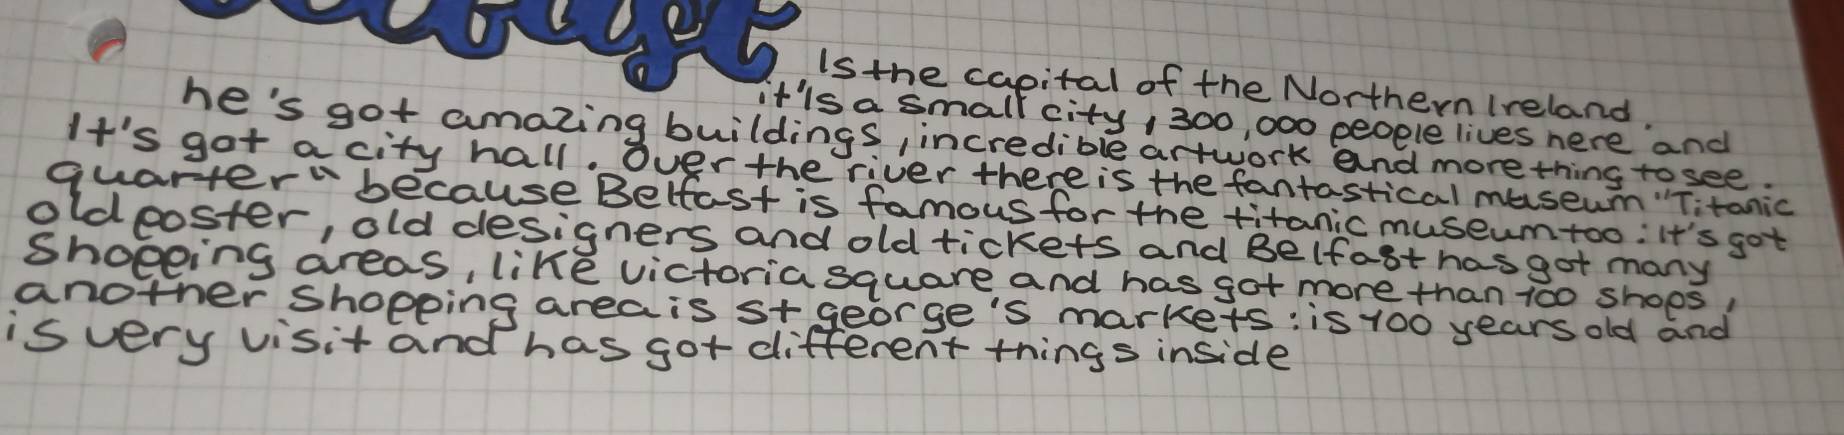 Belfast
Is the capital of the Northern Ireland.
it'is a small city, 300,000 people lives here and
he's got amazing buildings, incredible artwork and more thing to see.
It's got a city hall. Over the river there is the fantastical museum "Titanic
quarter" because Belfast is famous for the titanic museum too: It's got
old poster, old designers and old tickets and Belfast has got many
shopping areas, like victoria square and has got more than 100 shops,
another shopping area is st george's markets: is 100 years old and
is very visit and has got different things inside